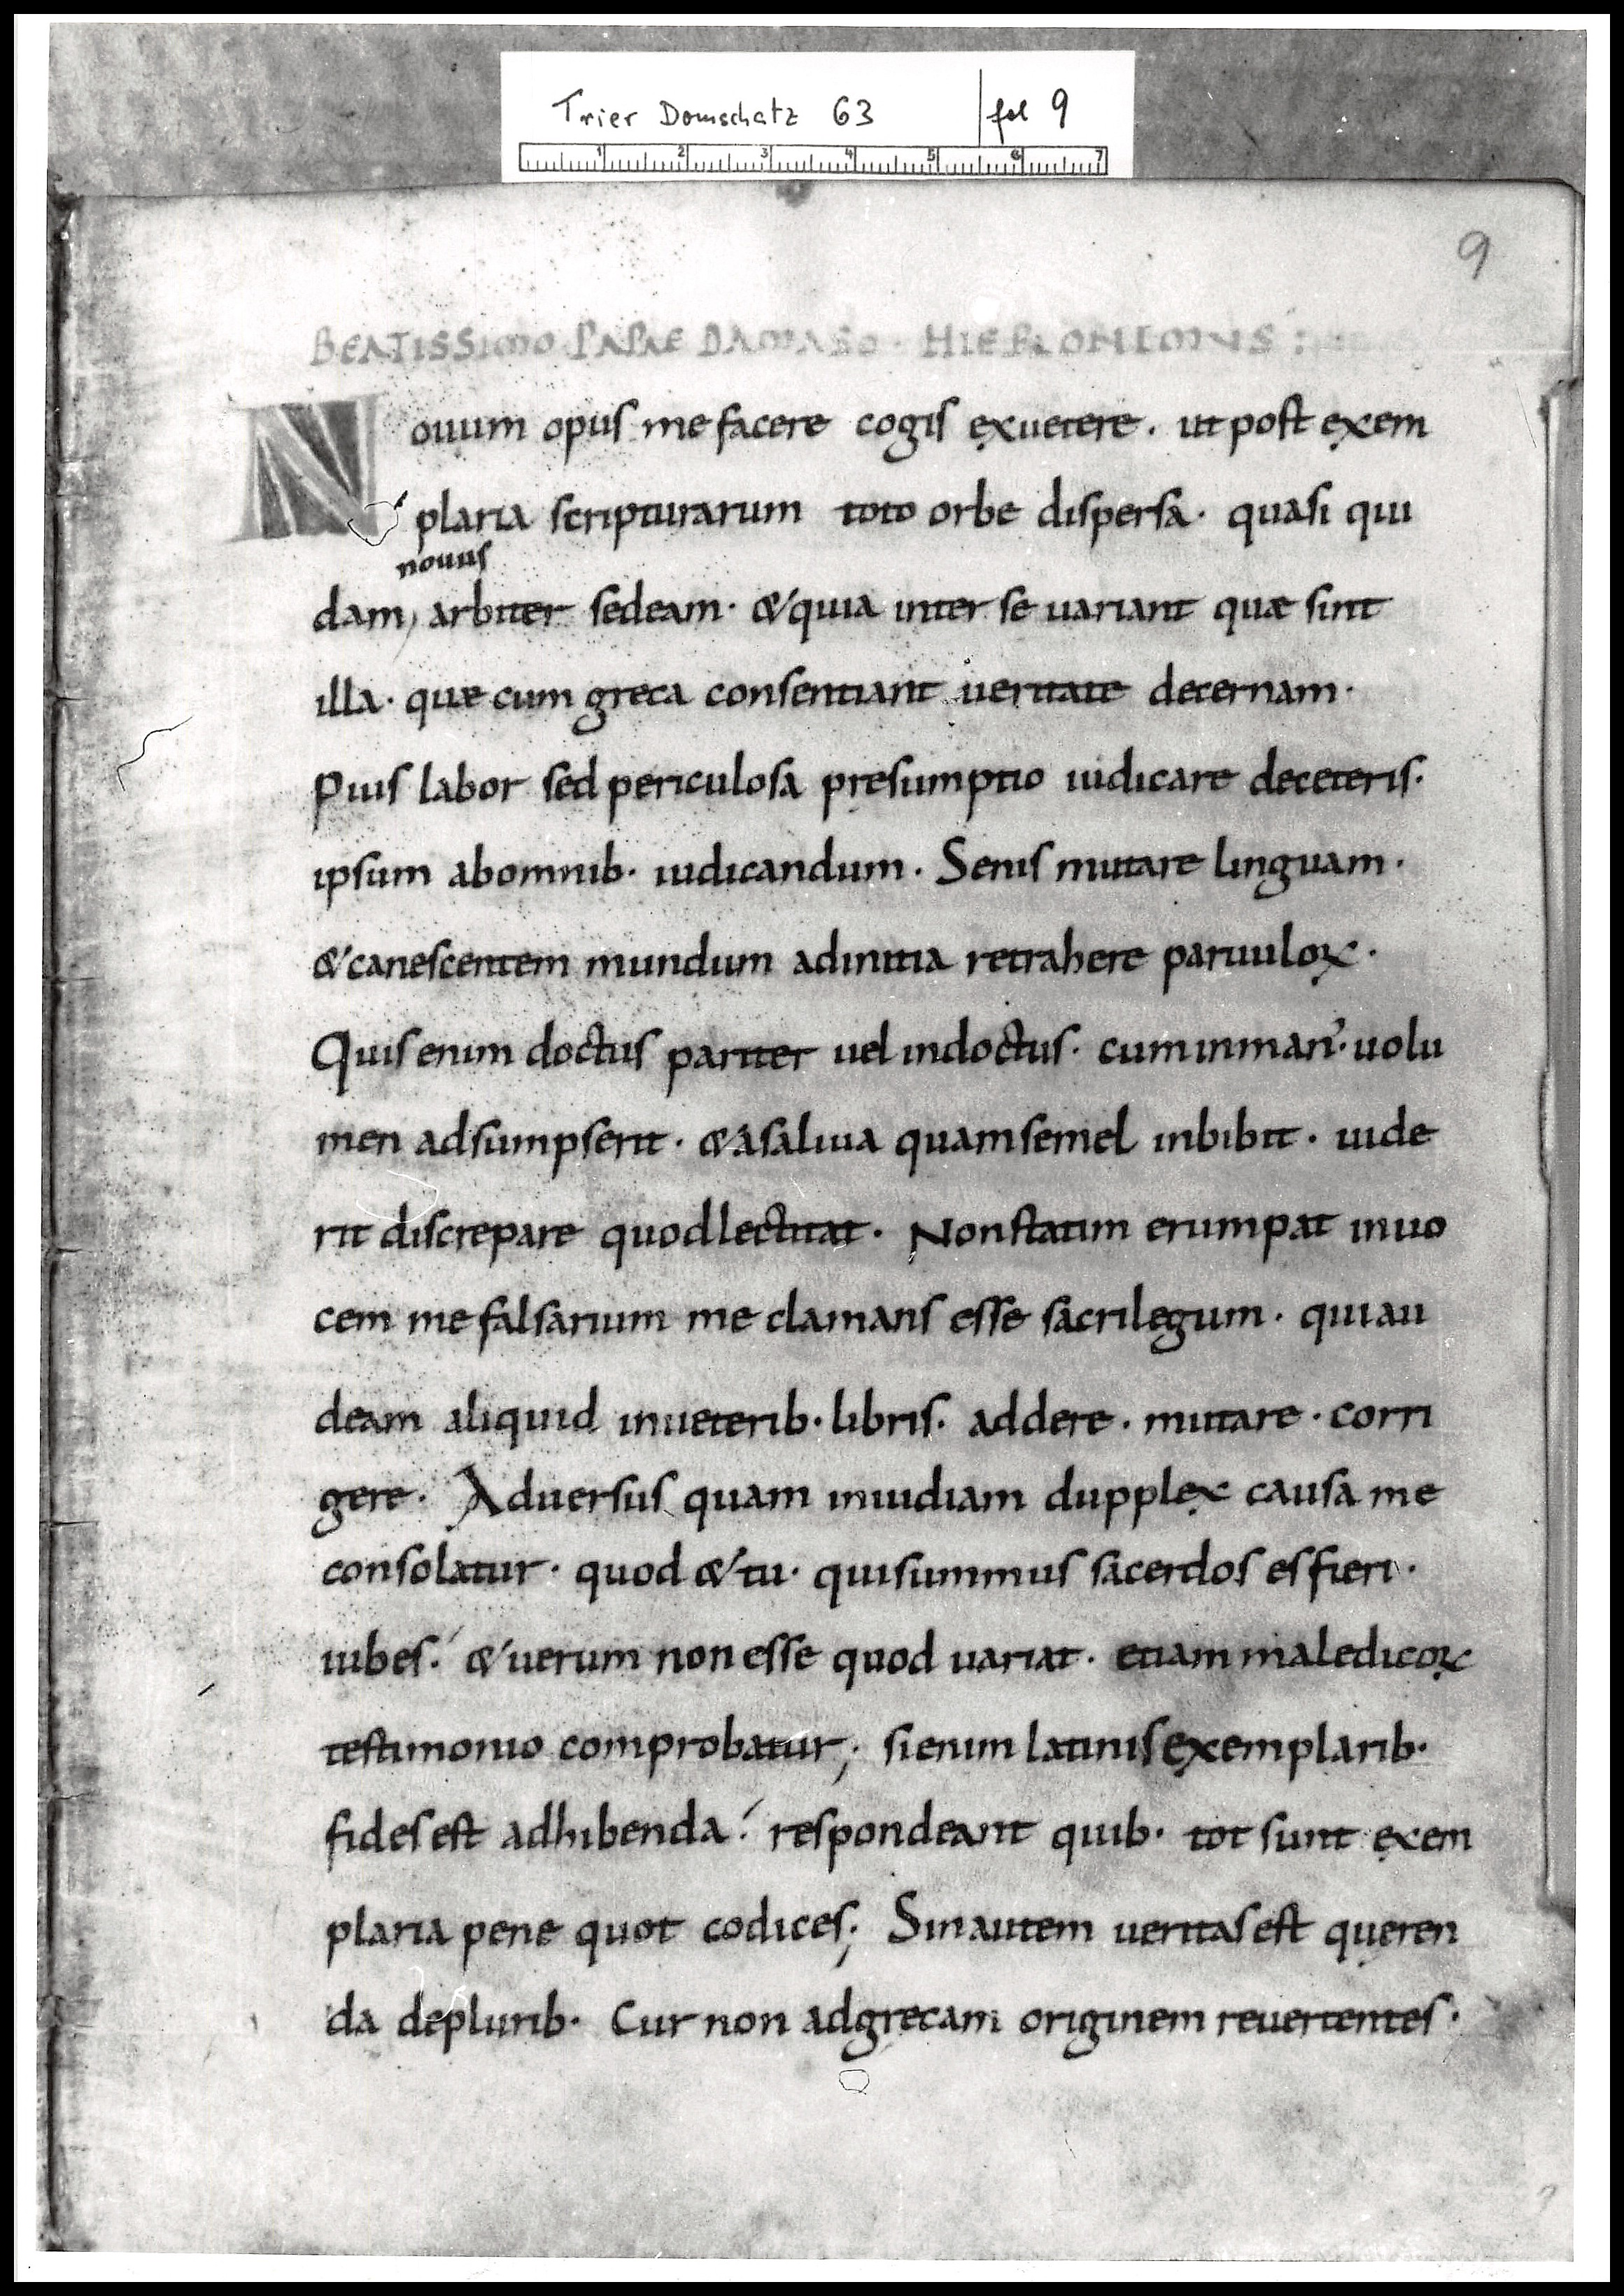 Trier Domschatz 63 | fol 9
1 2 3 4 5 6 7
9
BEATISSIMO PAPAE DAMASO · HIERONIMUS :
Nouum opus me facere cogis exuetere · ut post exem
plaria scripturarum toto orbe dispersa · quasi qui
nouus
dam, arbiter sedeam · & quia inter se uariant quæ sint
illa · quæ cum greca consentiant ueritate decernam ·
Pius labor sed periculosa pręsumptio iudicare deceteris ·
ipsum abomnib· iudicandum · Senis mutare linguam ·
& canescentem mundum adinitia retrahere paruuloꝝ ·
Quis enim doctus pariter uel indoctus · cum inman᾽· uolu
men adsumpserit · & àsaliua quam semel inbibit · uide
rit discrepare quod lectitat · Non statim erumpat inuo
cem me falsarium me clamans esse sacrilegum · qui au
deam aliquid inueterib· libris · addere · mutare · corri
gere · Aduersus quam inuidiam dupplex causa me
consolatur · quod & tu · qui summus sacerdos es fieri ·
iubes ·́ & uerum non esse quod uariat · etiam maledicoꝝ
testimonio comprobatur ; si enim latinis exemplarib·
fides est adhibenda ·́ respondeant quib· tot sunt exem
plaria pene quot codices ; Sin autem ueritas est quęren
da depluribꞏ Cur non adgrecam originem reuertentes ·